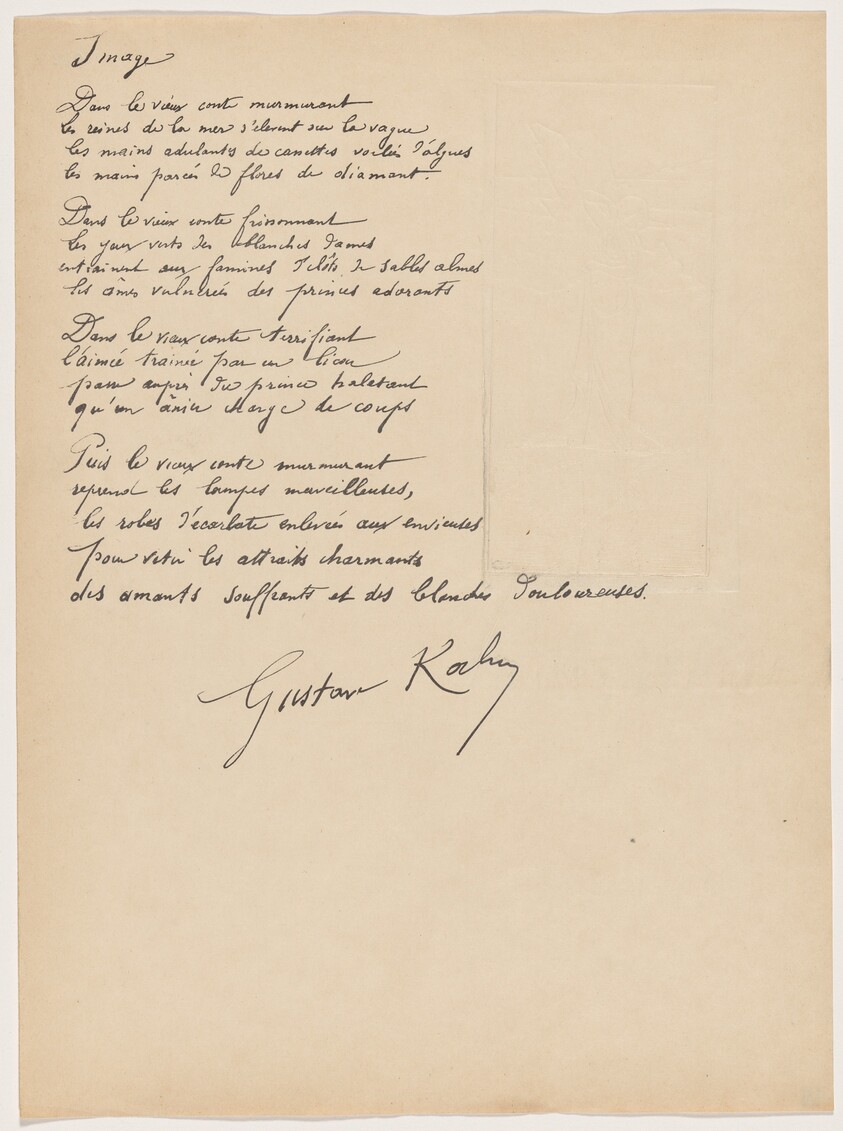 Image
Dans le vieux conte murmurant
les reines de la mer s'élèvent sur la vague
les mains adulants de voilées d'algues
les mains parées de flores de diamant.
Dans le vieux conte frissonnant
les yeux verts des blanches dames
entrainent aux famines d'ilôts de sables almes
les âmes vulnérées des princes adorants
Dans le vieux conte terrifiant
l'aimée trainée par un licou
passe auprès du prince haletant
qu'un ânier charge de coups
Puis le vieux conte murmurant
reprend les lampes merveilleuses,
les robes d'écarlate enlevées aux envieuses
pour vetir les attraits charmants
des amants souffrants et des blanches douloureuses.
Gustave Kahn